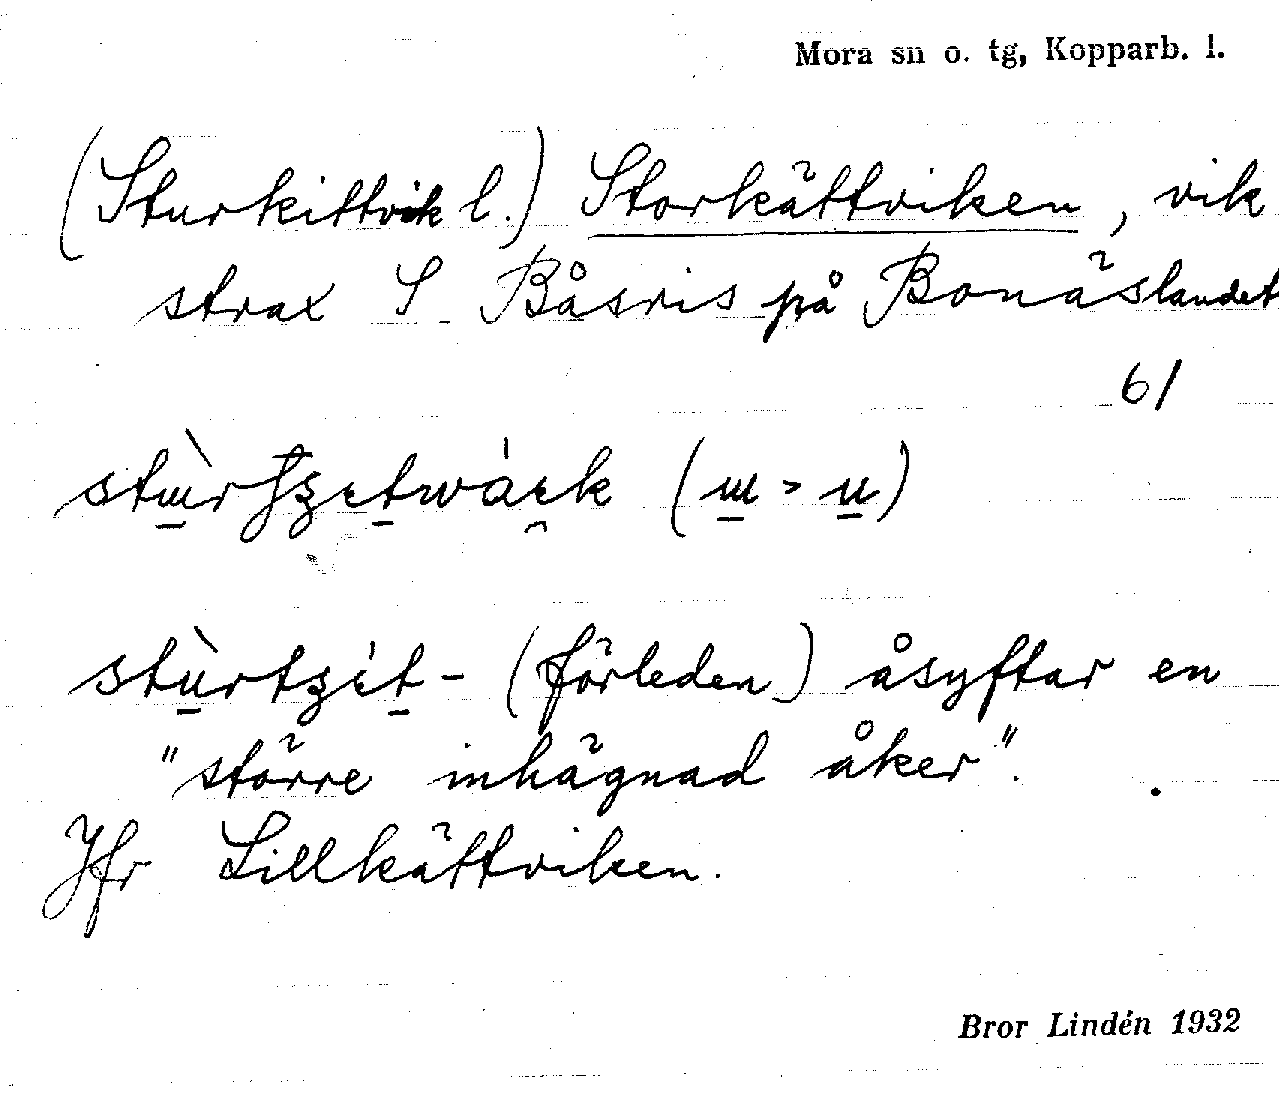 Mora sn o. tg, Kopparb. l.
(Sturkittvik l.) Storkättviken, vik
strax S Båsris på Bonäslandet
61
(ɯ > u)
stùrtʒít- (förleden) åsyftar en
"större inhägnad åker".
Jfr Lillkättviken.
Bror Lindén 1932